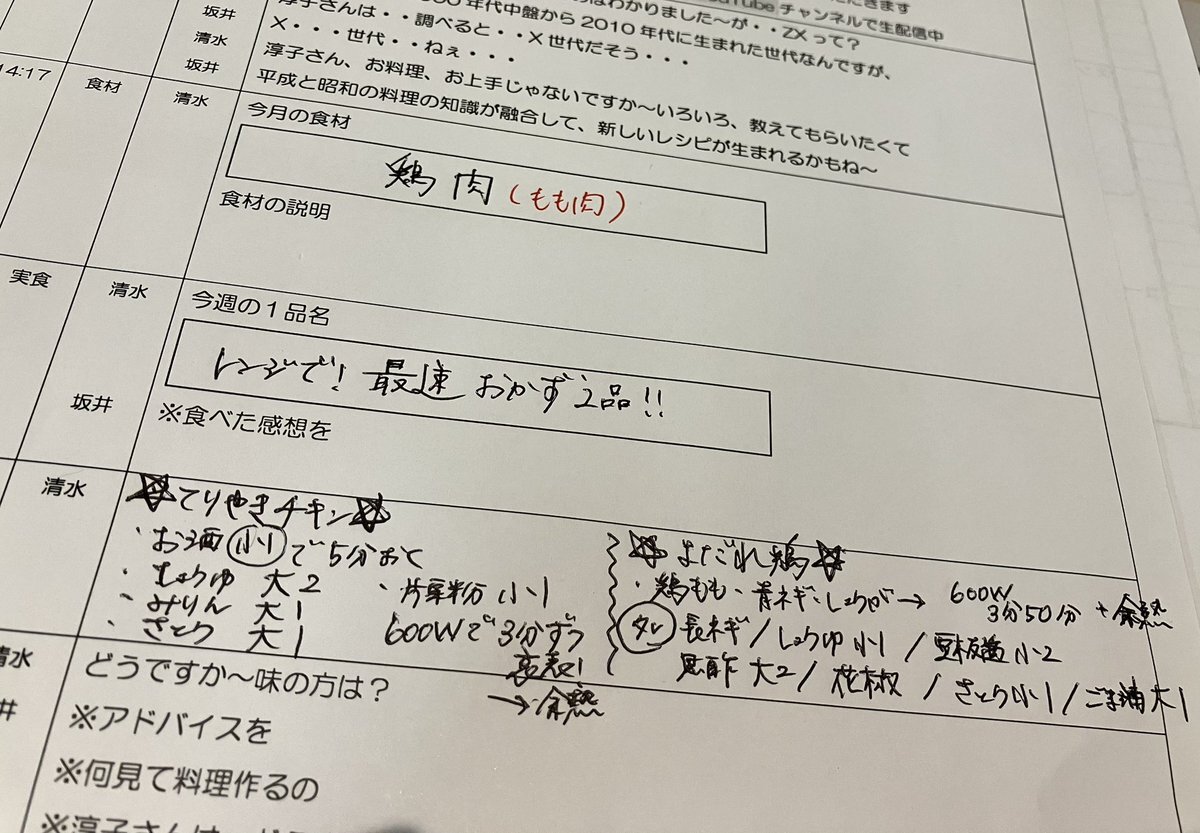 YouTubeチャンネルで生配信中
はわかりました～が・・ZXって？
年代中盤から2010年代に生まれた世代なんですが、
坂井 淳子さんは・・調べると・・X世代だそう・・・
清水 X・・・世代・・ねぇ・・・
坂井 淳子さん、お料理、お上手じゃないですか～いろいろ、教えてもらいたくて
平成と昭和の料理の知識が融合して、新しいレシピが生まれるかもね～
14:17 食材 清水 今月の食材
鶏肉(もも肉)
食材の説明
実食 清水 今週の1品名
レンジで!最速おかず2品!!
坂井 ※食べた感想を
清水 ☆てりやきチキン☆
・お酒 小1 で5分おく
・しょうゆ 大2 ・片栗粉 小1
・みりん 大1 600Wで3分ずつ
・さとう 大1 裏表!
→余熱
☆よだれ鶏☆
・鶏もも・青ネギ・しょうが→ 600W 3分50分+余熱
タレ 長ネギ/しょうゆ小1/豆板醤小2
黒酢大2/花椒/さとう小1/ごま油大1
清水 どうですか～味の方は？
※アドバイスを
※何見て料理作るの
※淳子さんは